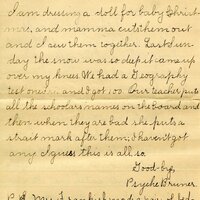 I am dressing a doll for baby Christ-
mas, and mamma cuts them out
and I sew them together. Last Sun-
day the snow was so deep it came up
over my knees. We had a Geography
test one    and I got 100. Our teacher puts
all the scholars names on the board and
then when they are bad she puts a
strait mark after them; I haven't got
any. I guess this is all so
Good-by,
Psyche Bruner.
P.S. My